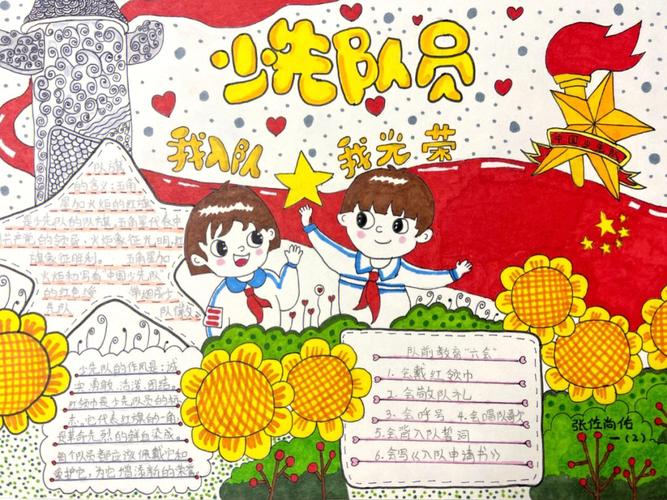 少先队员
我入队 我光荣
中国少先队
队旗
的含义:五角
星加火炬的红旗
是少先队的队旗,五角星代表中
国共产党的领导,火炬象征光明,红
旗象征胜利。五角星加
火炬和写有"中国少先队"
的红色绶
少先队的作风是:诚
实、勇敢、活泼、团结。
红领巾是少先队员的标
志,它代表红旗的一角,
是革命先烈的鲜血染成。
每个队员都应该佩戴它和
爱护它,为它增添新的荣誉。
队前教育"六会"
1.会戴红领巾
2.会敬队礼
3.会呼号 4.会唱队歌
5.会背入队誓词
6.会写《入队申请书》
张佐尚佑
一(2)